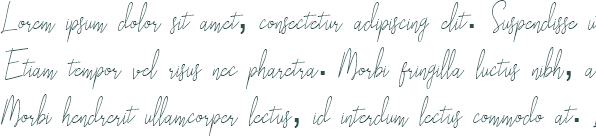 Lorem ipsum dolor sit amet, consectetur adipiscing elit. Suspendisse
Etiam tempor vel risus nec pharetra. Morbi fringilla luctus nibh, a
Morbi hendrerit ullamcorper lectus, id interdum lectus commodo at.